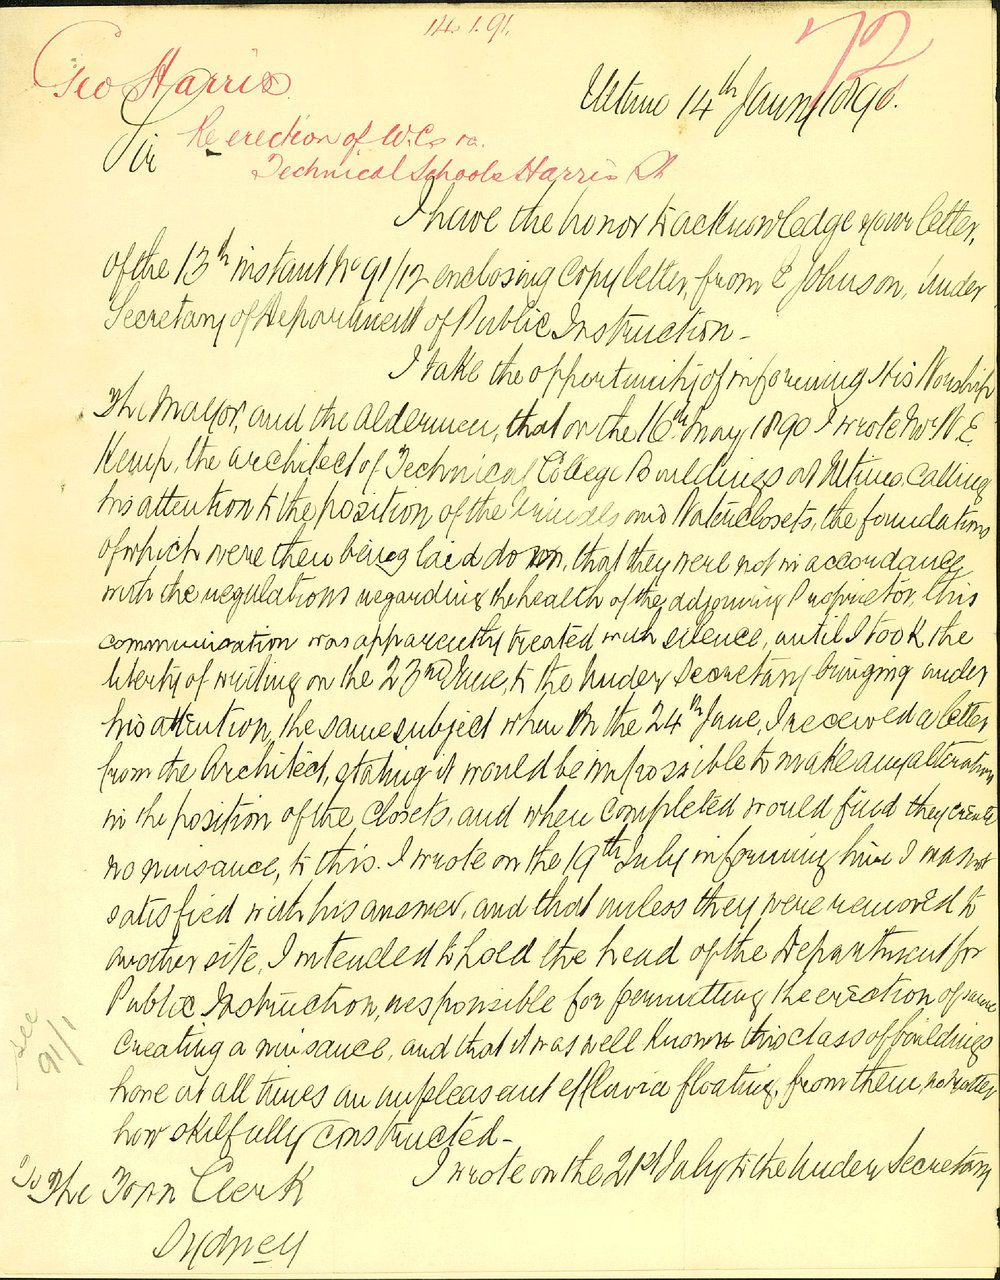 14.1.91.
72
Geo Harris
Ultimo 14th Jany 1890.
Sir
Re erection of W.Cs &c.
Technical Schools Harris St
I have the honor to acknowledge your letter,
of the 13th instant No 91/12 enclosing Copy letter, from E Johnson, Under
Secretary of Department of Public Instruction -
I take the opportunity of informing His Worship
The Mayor, and the Aldermen, that on the 16th May 1890 I wrote Mr W. E.
Kemp, the architect of Technical College Buildings at Ultimo, Calling
his attention to the position of the Urinals and Waterclosets, the foundations
of which were then being laid down, that they were not in accordance
with the regulations regarding the health of the adjoining Proprietor, this
communication was apparently treated with silence, until I took the
liberty of writing on the 23rd June, to the Under Secretary bringing under
his attention, the same subject when on the 24th June, I received a letter
from the Architect, stating it would be impossible to make any alteration
in the position of the Closets, and when completed would find they create
no nuisance, to this. I wrote on the 19th July informing him I was not
satisfied with his answer, and that unless they were removed to
another site, I intended to hold the head of the Department for
Public Instruction, responsible for permitting the erection of same
Creating a nuisance, and that it was well known this class of buildings
have at all times an unpleasant effluvia floating, from them, no matter
how skilfully constructed -
I wrote on the 21st July to the Under Secretary
see
91/1
To The Town Clerk
Sydney